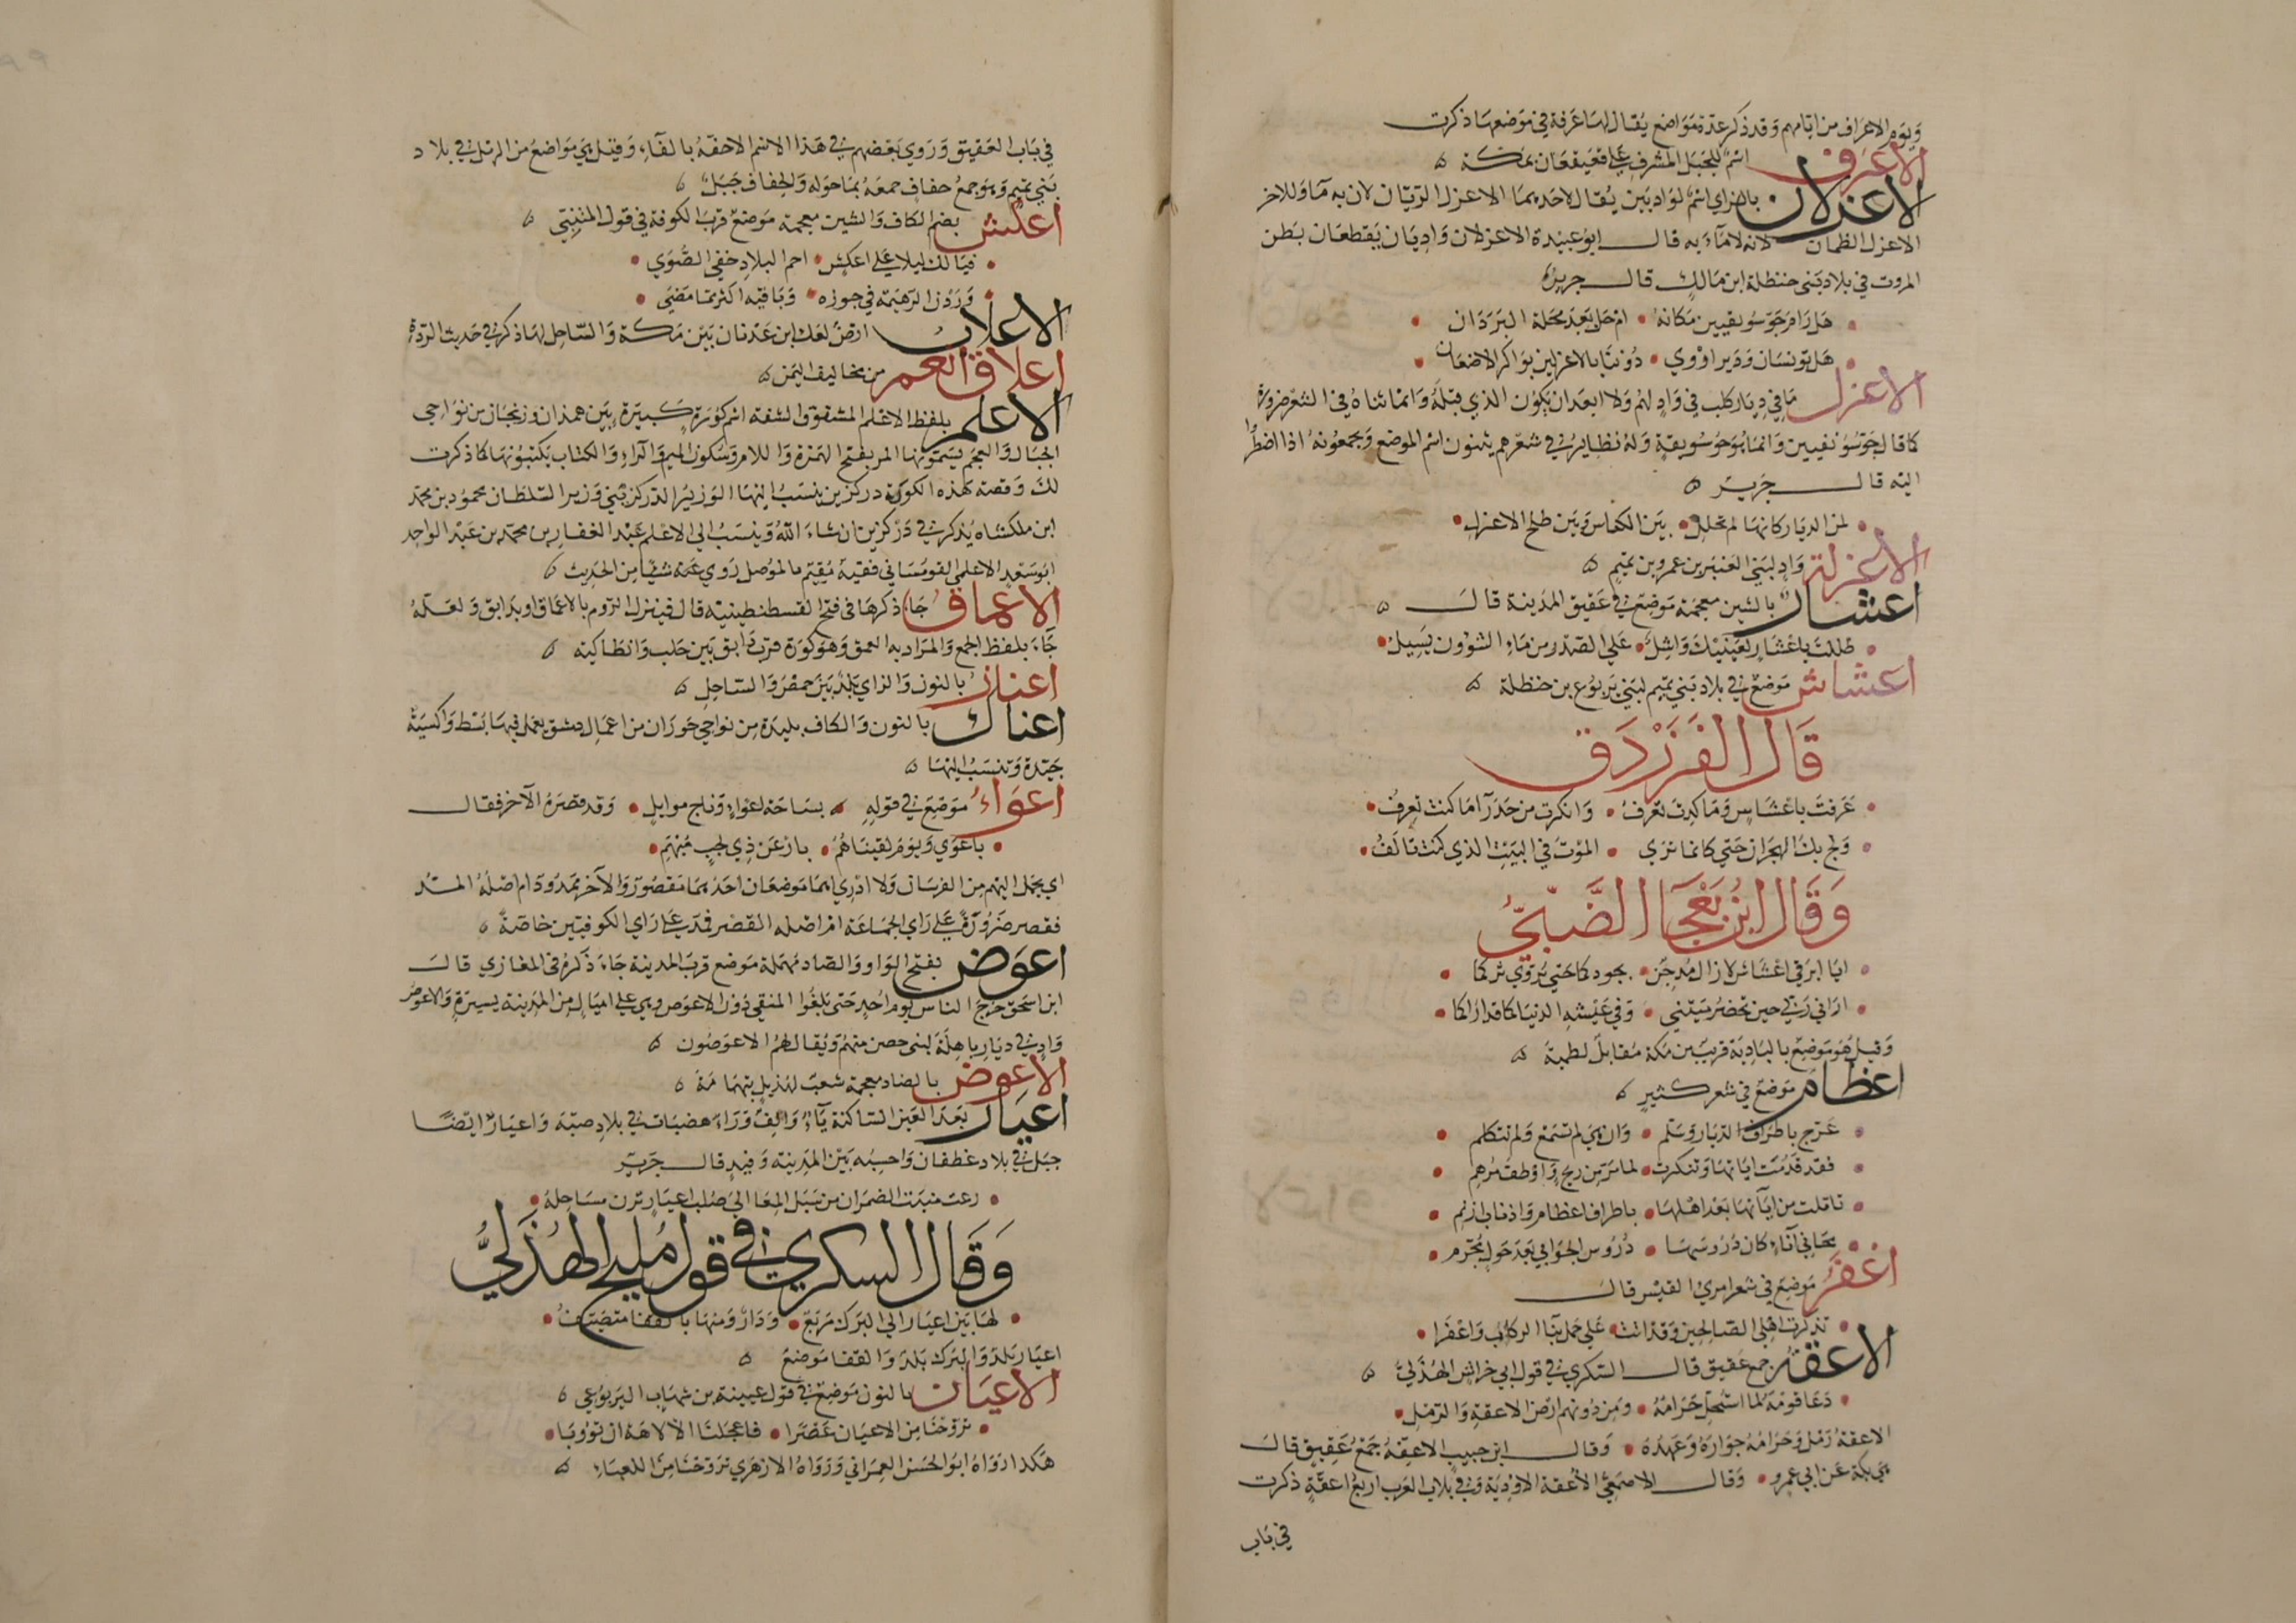 ويوم الاعراف من ايامهم وقد ذكر عدة مواضع يقال لها عرفة في موضعها ذكرت
الاعرف اسم للجبل المشرف على قعيقعان بمكة
الاعزلان بالزاي اسم لواديين يقال لاحدهما الاعزل الريان لان به ماء وللاخر
الاعزل الظمان لانه لا ماء به قال ابو عبيدة الاعزلان واديان يقطعان بطن
المروت في بلاد بني حنظلة ابن مالك قال جرير
هل رام جو سويقيين مكانه • ام حل بعد محلة البردان
هل تونسان ودير اروي • دوننا بالاعزلين بواكر الاضعان
الاعزل ما في ديار كلب في واد لهم ولا ابعد ان يكون الذي قبله وانما ثناه في الشعر ضرورة
كما قال جو سويقيين وانما هو جو سويقة وله نظاير في شعرهم يثنون اسم الموضع ويجمعونه اذا اضطروا
اليه قال جرير
لمن الديار كانها لم تحلل • بين الكناس وبين طلح الاعزل
الاعزلة واد لبني العنبر بن عمرو بن تميم
اعشار بالشين معجمة موضع في عقيق المدينة قال
ظللت باعشار لعينيك واشل • على الصدر من ماء الشؤون يسيل
اعشاش موضع في بلاد بني تميم لبني يربوع بن حنظلة
قال الفرزدق
عرفت باعشاش وما كدت تعرف • وانكرت من حدرآ ما كنت تعرف
ولج بك الهجران حتى كانما ترى • الموت في البيت الذي كنت تالف
وقال ابن بعجا الضبي
ايا ابرقي اعشاش لازال مدجن • يجودكما حتى يروي ثراكما
اراني ربي حين تحضر ميتتي • وفي عيشه الدنيا كما قد اراكما
وقيل هو موضع بالبادية قريب من مكة مقابل لطمية
اعظام موضع في شعر كثير
عرج باطراف الديار وسلم • وان هي لم تسمع ولم تتكلم
فقد قدمت اياتها وتنكرت • لما مر من ريح واوطف مرهم
تاملت من آياتها بعد اهلها • باطراف اعظام واذناب ازنم
محاني آناء كان دروسها • دروس الجوابي بعد حول مجرم
اعفر موضع في شعر امري القيس قال
تذكرت اهلي الصالحين وقد اتت • على حمل بنا الركاب واعفرا
الاعقة جمع عقيق قال السكري في قول ابي خراش الهذلي
دعا قومه لما استحل حرامه • ومن دونهم ارض الاعقة والرمل
الاعقة رمل وحرامه جواره وعهده • وقال ابن حبيب الاعقة جمع عقيق قال
هي بكة عن ابي عمرو • وقال الاصمعي الاعقة الاودية وفي بلاد العرب اربع اعقة ذكرت
في باب
في باب العقيق وروي بعضهم في هذا الاسم الاحفة بالفاء وقيل هي مواضع من الرمل في بلاد
بني تميم وهو جمع حفاف جمعه بما حوله والحفاف جبل
اعكش بضم الكاف والشين معجمة موضع قرب الكوفة في قول المتنبي
فيالك ليلا على اعكش • احم البلاد خفي الصوي
وردن الرهيمة في جوزه • وباقيه اكثر مما مضي
الاعلاب ارض لعك ابن عدنان بين مكة والساحل لها ذكر في حديث الردة
اعلاق العم من مخاليف اليمن
الاعلم بلفظ الاعلم المشقوق الشفة اسم كورة كبيرة بين همذان وزنجان من نواحي
الجبال والعجم يسمونها المر بفتح الهمزة واللام وسكون الميم والراء والكتاب يكتبونها كما ذكرت
لك وقصبة هذه الكورة دركزين ينسب اليها الوزير الدركزيني وزير السلطان محمود بن محمد
ابن ملكشاه يذكر في دركزين ان شاء الله وينسب الى الاعلم عبد الغفار بن محمد بن عبد الواحد
ابو سعد الاعلمي القومساني فقيه مقيم بالموصل روي عنه شيئا من الحديث
الاعماق جاء ذكرها في فتح القسطنطينية قال فينزل الروم بالاعماق او بدابق ولعله
جآء بلفظ الجمع والمراد به العمق وهو كورة قرب دابق بين حلب وانطاكية
اعناز بالنون والزاي بلد بين حمص والساحل
اعناك بالنون والكاف بليدة من نواحي حوران من اعمال دمشق يعمل فيها بسط واكسية
جيدة وتنسب اليها
اعواء موضع في قوله • بساحة اعواء وناج موايل • وقد قصره الآخر فقال
باعوي ويوم لقيناهم • بارعن ذي لجب مبهم
اي يحمل اليهم من الفرسان ولا ادري اهما موضعان احدهما مقصور والآخر ممدود ام اصله المد
فقصر ضرورة على راي الجماعة ام اصله القصر فمد على راي الكوفيين خاصة
اعوص بفتح الواو والصاد مهملة موضع قرب المدينة جاء ذكره في المغازي قال
ابن اسحق خرج الناس يوم احد حتى بلغوا المنقي دون الاعوص وهي على اميال من المدينة يسيرة والاعوص
واد في ديار باهلة لبني حصن منهم ويقال لهم الاعوصون
الاعوض بالضاد معجمة شعب لهذيل بتهامة
اعيار بعد العين الساكنة ياء والف وراء هضبات في بلاد ضبة واعيار ايضا
جبل في بلاد غطفان واحسبه بين المدينة وفيد قال جرير
رعت منبت الضمران من سبل المعا الي صلب اعيار ترن مساحله
وقال السكري في قول مليح الهذلي
لها بين اعيار الي البرك مربع • ودار ومنها بالقفا متصيف
اعيار بلد والبرك بلد والقفا موضع
الاعيان بالنون موضع في قول عيينة بن شهاب اليربوعي
تروحنا من الاعيان عصرا • فاعجلنا الالاهة ان تؤوبا
هكذا رواه ابو الحسن العمراني ورواه الازهري تروحنا من اللعباء